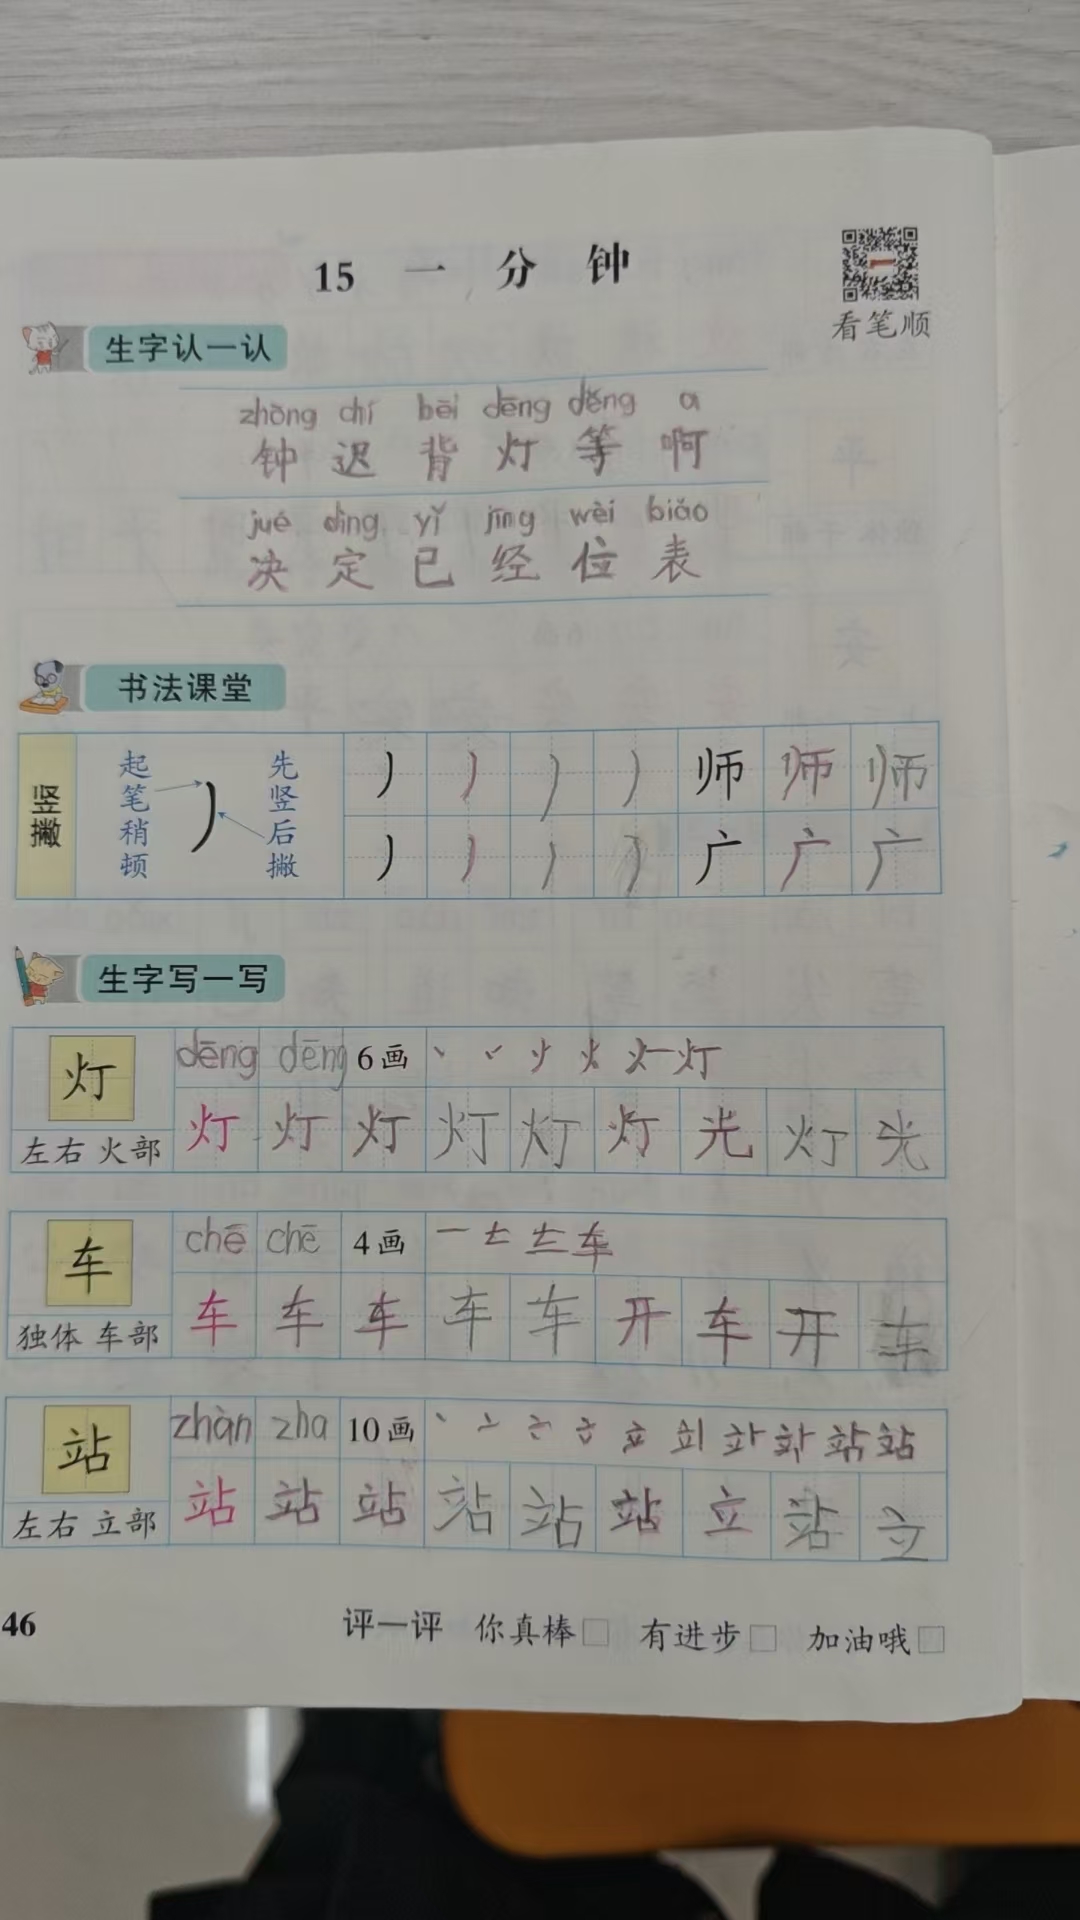 15 一分钟
看笔顺
生字认一认
zhōng chí bēi dēng děng a
钟 迟 背 灯 等 啊
jué dìng yǐ jīng wèi biǎo
决 定 已 经 位 表
书法课堂
竖撇 起笔稍顿 先竖后撇 丿 丿 丿 丿 师 师 师
丿 丿 丿 丿 广 广 广
生字写一写
灯 dēng dēng 6画 灯
左右 火部 灯 灯 灯 灯 灯 灯 光 灯 光
车 chē chē 4画 一 车
独体 车部 车 车 车 车 车 开 车 开 车
站 zhàn zha 10画 丶 亠 立 站
左右 立部 站 站 站 站 站 站 立 站 立
46 评一评 你真棒□ 有进步□ 加油哦□